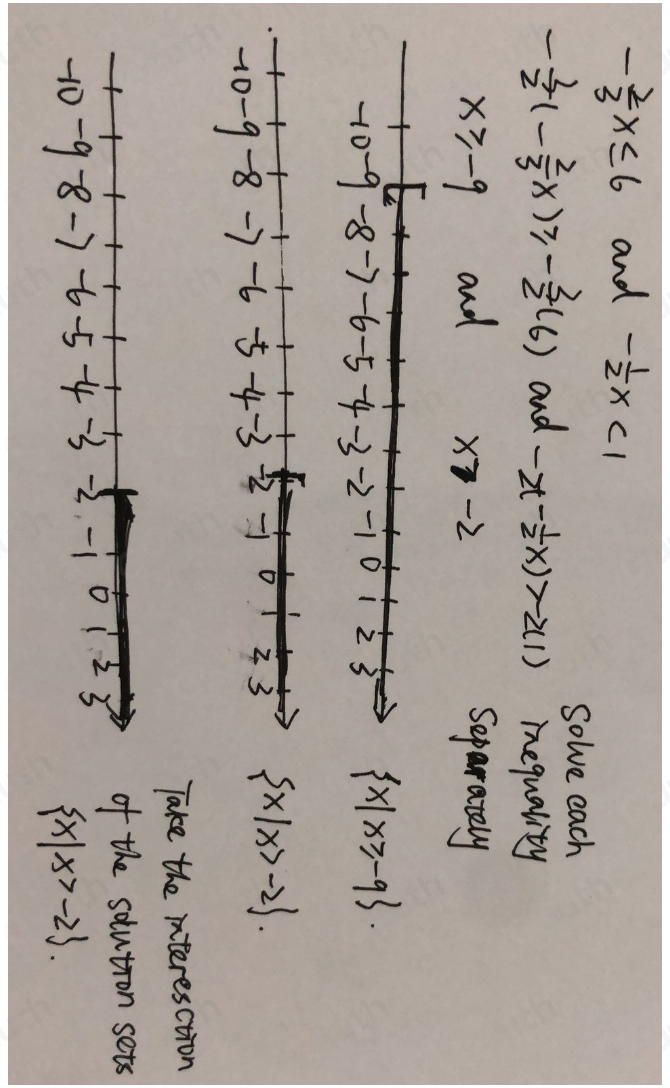 -2/3x ≤ 6 and -1/2x < 1
-3/2(-2/3x) ≥ -3/2(6) and -2(-1/2x) > -2(1)
x ≥ -9 and x > -2
Solve each
inequality
separately
-10 -9 -8 -7 -6 -5 -4 -3 -2 -1 0 1 2 3
{x|x ≥ -9}.
-10 -9 -8 -7 -6 -5 -4 -3 -2 -1 0 1 2 3
{x|x > -2}.
Take the interesction
of the solution sets
-10 -9 -8 -7 -6 -5 -4 -3 -2 -1 0 1 2 3
{x|x > -2}.